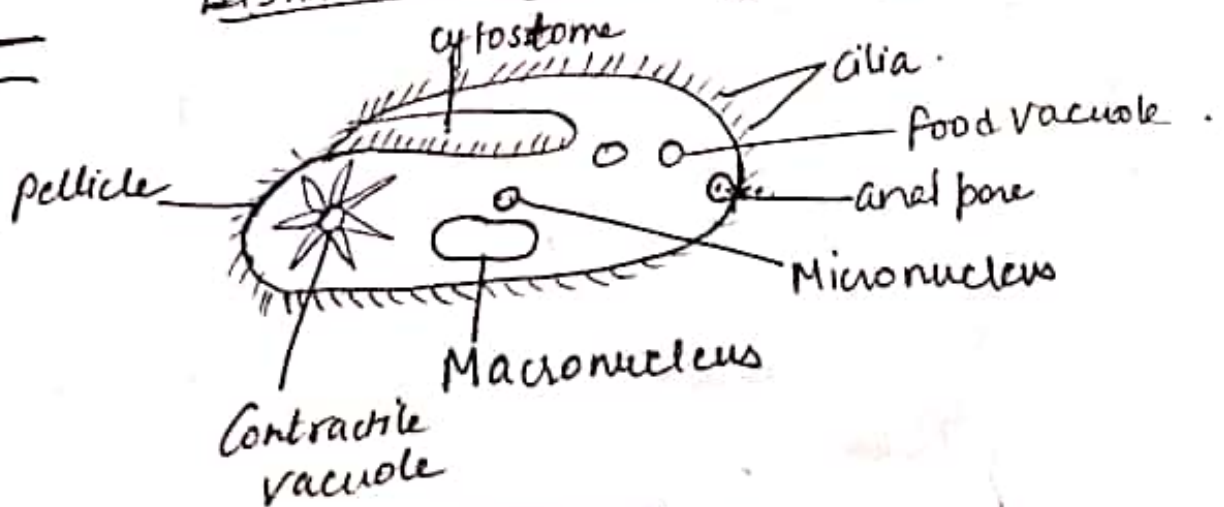 cytostome
cilia.
food vacuole.
pellicle
anal pore
Micronucleus
Macronucleus
Contractile
vacuole